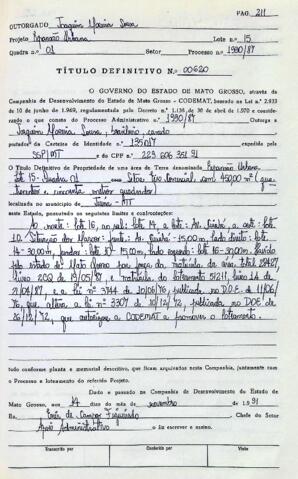 PAG. 211
OUTORGADO Joaquim Moreira Sousa
Projeto Expansão Urbana Lote n.o 15
Quadra n.o 01 Setor Processo n.o 1980/87
TÍTULO DEFINITIVO Nº 00620
O GOVERNO DO ESTADO DE MATO GROSSO, através da
Companhia de Desenvolvimento do Estado de Mato Grosso - CODEMAT, baseado na Lei n.º 2.933
de 10 de junho de 1969, regulamentada pelo Decreto n.º 1.138 de 30 de abril de 1.970 e considerando
o que consta do Processo Administrativo n.º 1980/87 Outorga a
Joaquim Moreira Sousa, brasileiro, casado
portador da Carteira de Identidade n.º 135017 expedida pela
SSP/MT e do CPF n.º
Título Definitivo de Propriedade de uma área de Terra denominada Expansão Urbana
Lote 15 - Quadra 01 com 450,00 m² (quatrocentos
e cinquenta metros quadrados)
localizada no município de - MT
neste Estado, possuindo os seguintes limites e confrontações:
Ao norte: lote 16, ao sul: lote 14, a este: a oeste: lote
10. frente: 15,00m, lado direito: lote
14 - 30,00m, fundos: lote 10 - 15,00m, lado esquerdo: lote 16 - 30,00m.
pelo estado de Mato Grosso por força da matrícula da área total
livro e matrícula do loteamento
e a Lei nº 3744 de publicada no D.O.E. de 11/06/
76, que altera a Lei nº 3307 de 18/12/72, publicada no D.O.E. de
que autoriza a CODEMAT a promover o loteamento.
tudo conforme planta e memorial descritivo, que ficam arquivados nesta Companhia, juntamente com
o Processo e loteamento do referido Projeto.
Dado e passado na Companhia de Desenvolvimento do Estado de
Mato Grosso, aos 14 dias do mês de novembro de 1.991
Eu, de Campos Figueiredo Chefe do Setor
Apoio Administrativo o fiz escrever e assino.
Transcrito por Conferido por Visto